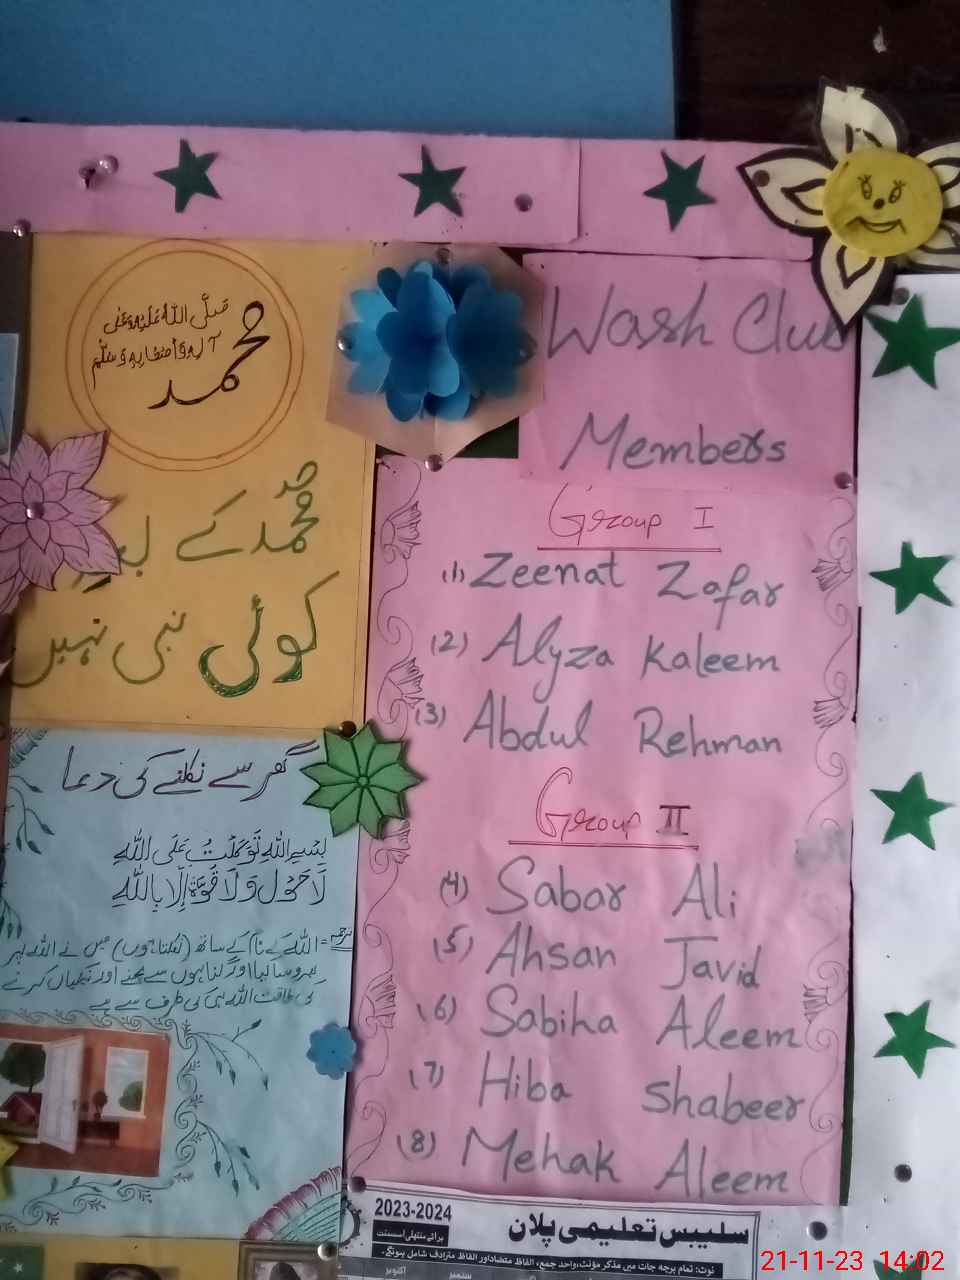 صَلَّی اللّٰهُ عَلَیْهِ وَعَلٰی
آلِهٖ وَاَصْحَابِهٖ وَسَلَّم
محمد
مُحمّد کے بعد
کوئی نبی نہیں
گھر سے نکلنے کی دعا
بِسْمِ اللّٰهِ تَوَكَّلْتُ عَلَى اللّٰهِ
لَا حَوْلَ وَلَا قُوَّةَ إِلَّا بِاللّٰهِ
ترجمہ = اللہ کے نام کے ساتھ (نکلتا ہوں) میں نے اللہ پر
بھروسا کیا اور گناہوں سے بچنے اور نیکیاں کرنے
کی طاقت اللہ ہی کی طرف سے ہے
Wash Club
Members
Group I
(1) Zeenat Zafar
(2) Alyza Kaleem
(3) Abdul Rehman
Group II
(4) Sabar Ali
(5) Ahsan Javid
(6) Sabiha Aleem
(7) Hiba Shabeer
(8) Mehak Aleem
سلیبس تعلیمی پلان 2023-2024
برائے منتھلی اسسمنٹ
نوٹ: تمام پرچہ جات میں مذکر مؤنث، واحد جمع، الفاظ متضاد اور الفاظ مترادف شامل ہونگے۔
ستمبر اکتوبر
21-11-23 14:02